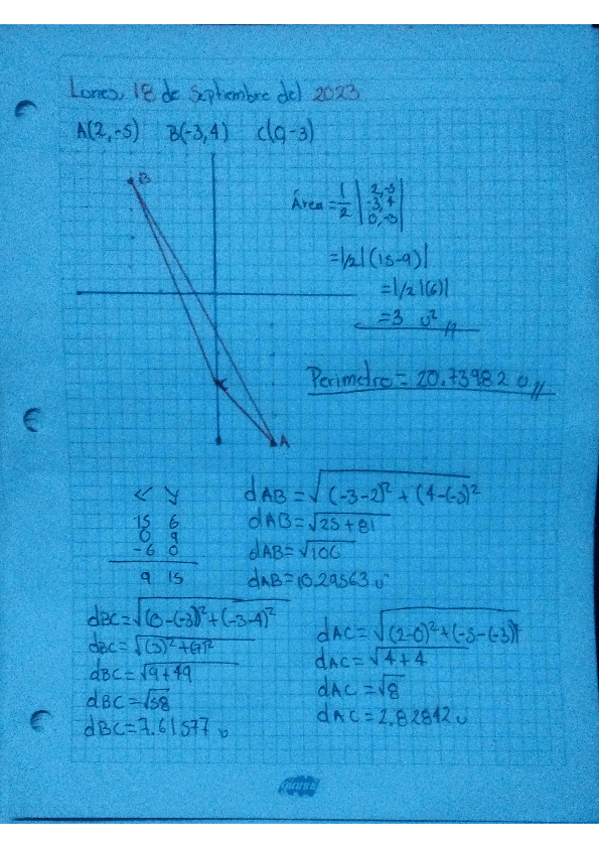 Lunes, 18 de Septiembre del 2023
A(2,-5) B(-3,4) C(0,-3)
B
Área = 1/2 | 2,-5
-3,4
0,-3 |
= 1/2 | (15-9) |
= 1/2 |(6)|
= 3 u² //
Perimetro = 20.73982 u //
C
A
↙ ↘
15 6
0 9
-6 0
9 15
dAB = √(-3-2)² + (4-(-5)²
dAB = √25+81
dAB = √106
dAB = 10.29563 u
dBC = √(0-(-3))² + (-3-4)²
dBC = √(3)² + (7)²
dBC = √9+49
dBC = √58
dBC = 7.61577 u
dAC = √(2-0)² + (-5-(-3))²
dAC = √4+4
dAC = √8
dAC = 2.82842 u